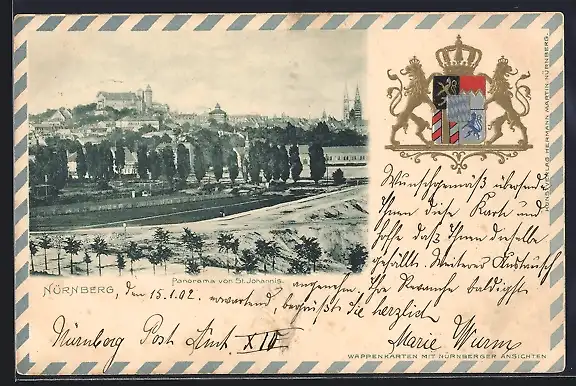 Wunschgemäß übersende
Ihnen diese Karte und
hoffe daß Ihnen dieselbe
gefällt. Weiterer Austausch
angenehm. Ihre Revanche baldigst
erwartend, begrüßt Sie herzlich
Marie Wurm
Panorama von St. Johannis.
NÜRNBERG, den 15.1.02.
Nürnberg Post Amt XIII
WAPPENKARTEN MIT NÜRNBERGER ANSICHTEN
KUNSTVERLAG HERMANN MARTIN NÜRNBERG.